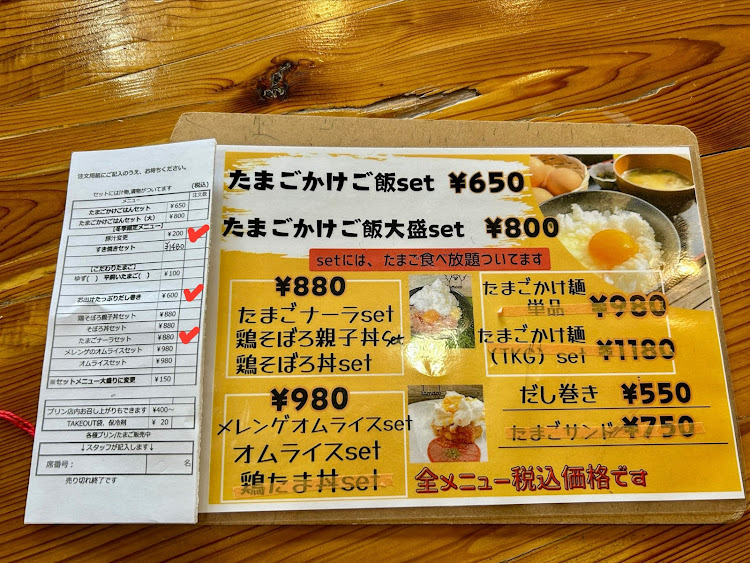 注文用紙にご記入のうえ、お待ちください。
セットには汁物、漬物がついてます (税込)
メニュー 注文数
たまごかけごはんセット ¥650
たまごかけごはんセット(大) ¥800
【冬季限定メニュー】
豚汁変更 ¥200
すき焼きセット ¥1480
【こだわりたまご】
ゆず( ) 平飼いたまご( ) ¥100
お出汁たっぷりだし巻き ¥600
鶏そぼろ親子丼セット ¥880
そぼろ丼セット ¥880
たまごナーラセット ¥880
メレンゲのオムライスセット ¥980
オムライスセット ¥980
※セットメニュー大盛りに変更 ¥150
プリン店内お召し上がりもできます ¥400〜
TAKEOUT袋、保冷剤 ¥ 20
各種プリン/たまご販売中
↓スタッフが記入します↓
席番号: 名
売り切れ終了です
たまごかけご飯set ¥650
たまごかけご飯大盛set ¥800
setには、たまご食べ放題ついてます
¥880
たまごナーラset
鶏そぼろ親子丼set
鶏そぼろ丼set
¥980
メレンゲオムライスset
オムライスset
鶏たま丼set
たまごかけ麺
単品 ¥980
たまごかけ麺
(TKG) set ¥1180
だし巻き ¥550
たまごサンド ¥750
全メニュー税込価格です